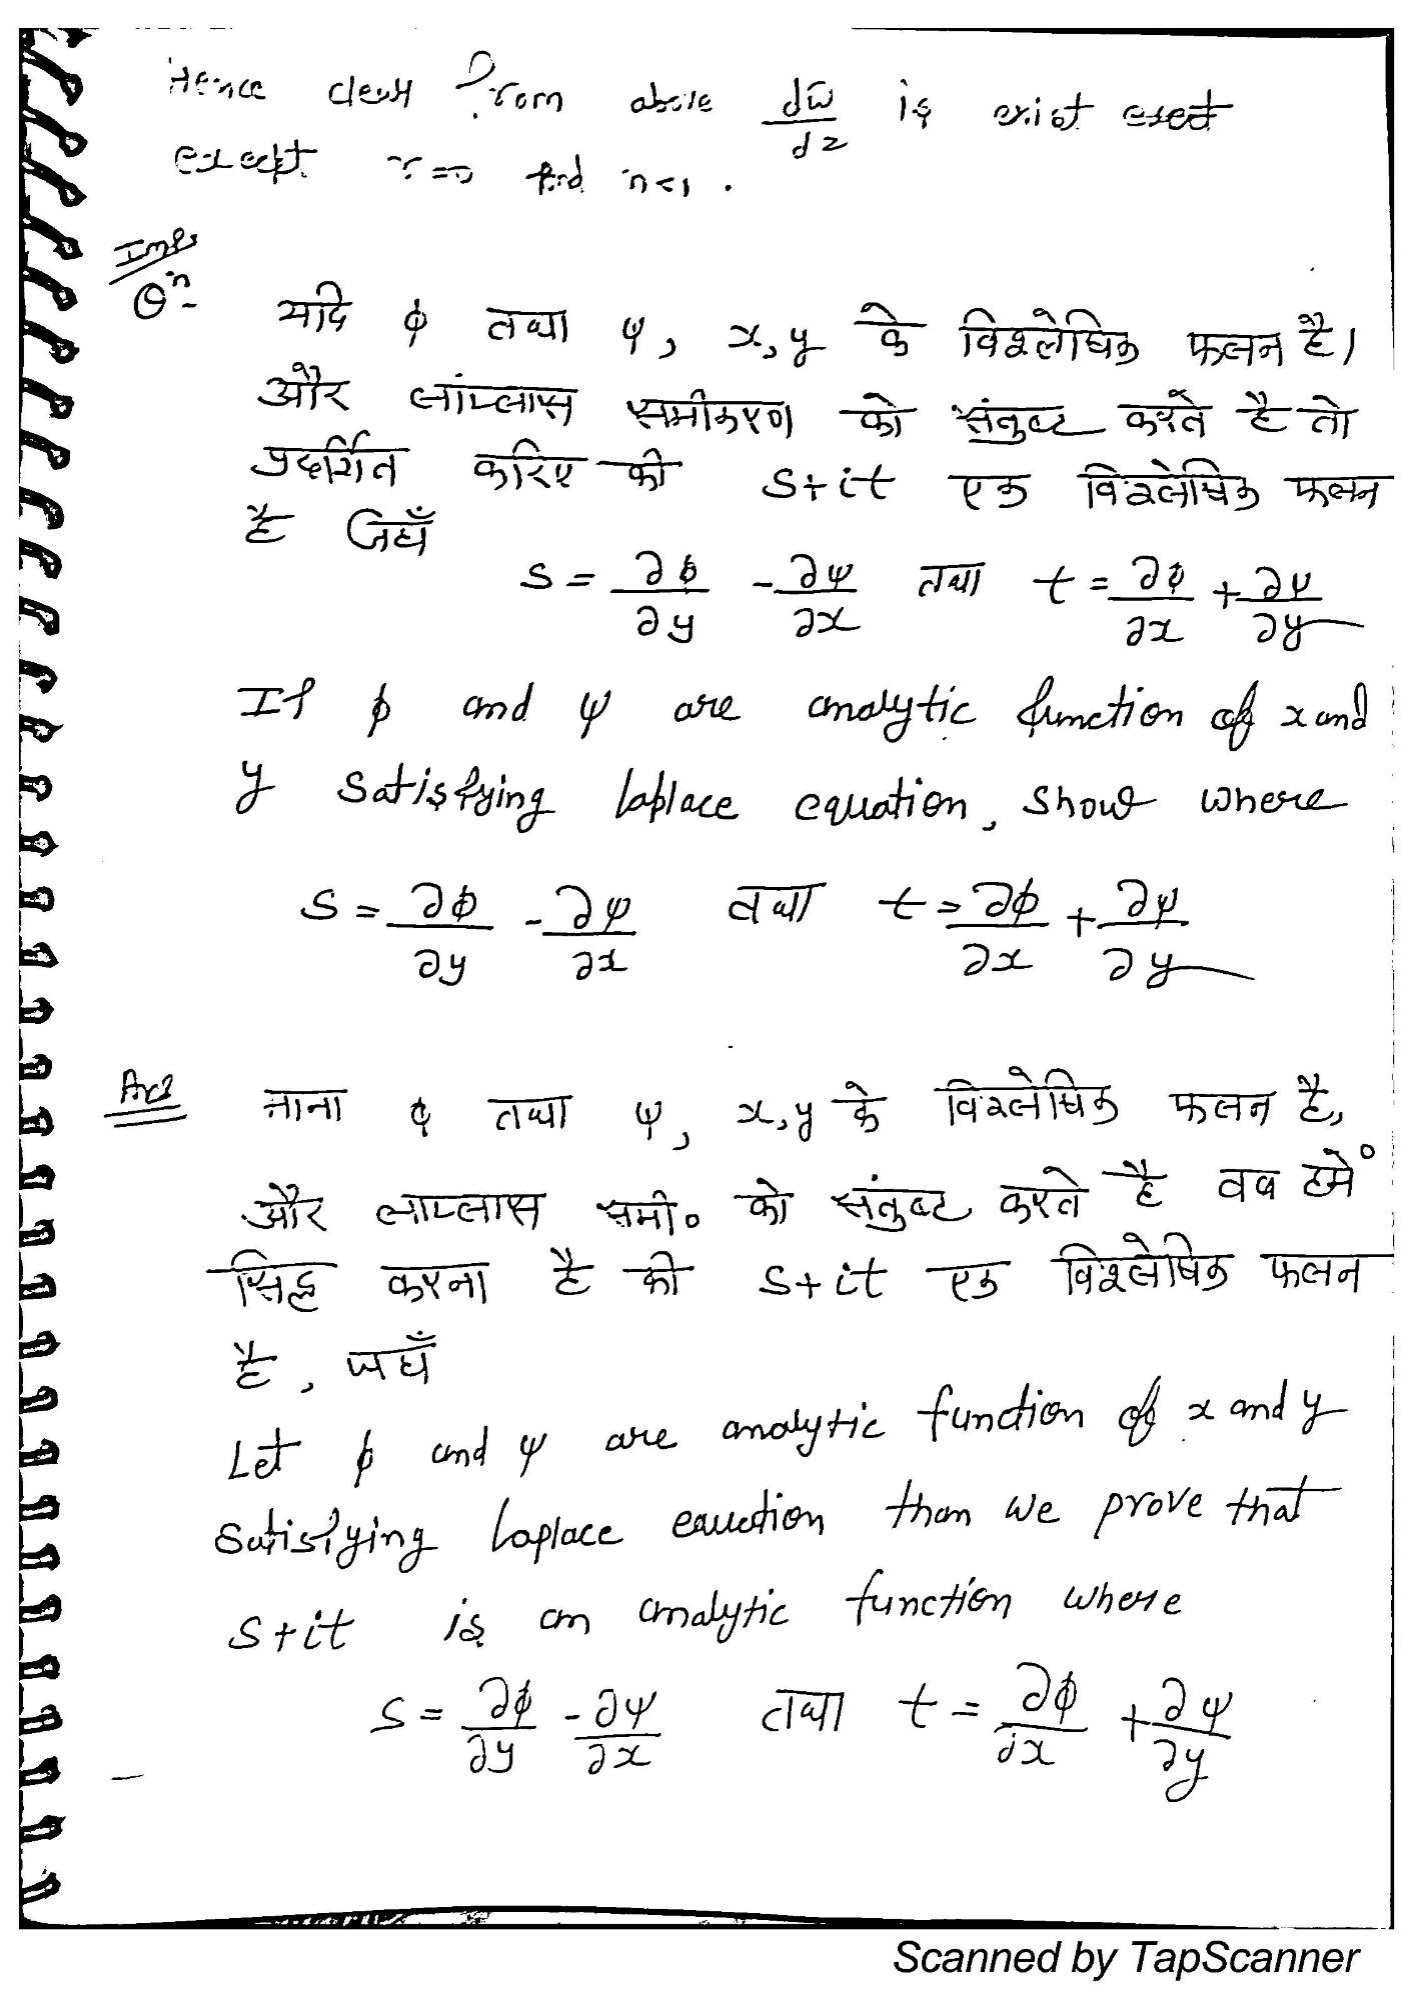 Hence clear from above dw/dz is exist
except r=0 and n<1.
Imp
Qn-
यदि ϕ तथा ψ, x,y के विश्लेषिक फलन है।
और लांप्लास समीकरण को संतुष्ट करते है तो
प्रदर्शित करिए की S+it एक विश्लेषिक फलन
है जहाँ
S = ∂ϕ/∂y - ∂ψ/∂x तथा t = ∂ϕ/∂x + ∂ψ/∂y
If ϕ and ψ are analytic function of x and
y satisfying laplace equation, show where
S = ∂ϕ/∂y - ∂ψ/∂x तथा t = ∂ϕ/∂x + ∂ψ/∂y
Ans माना ϕ तथा ψ, x,y के विश्लेषिक फलन है,
और लाप्लास समी० को संतुष्ट करते है तब हमें
सिद्ध करना है की S+it एक विश्लेषिक फलन
है, जहाँ
Let ϕ and ψ are analytic function of x and y
satisfying laplace equation than we prove that
S+it is an analytic function where
S = ∂ϕ/∂y - ∂ψ/∂x तथा t = ∂ϕ/∂x + ∂ψ/∂y
Scanned by TapScanner